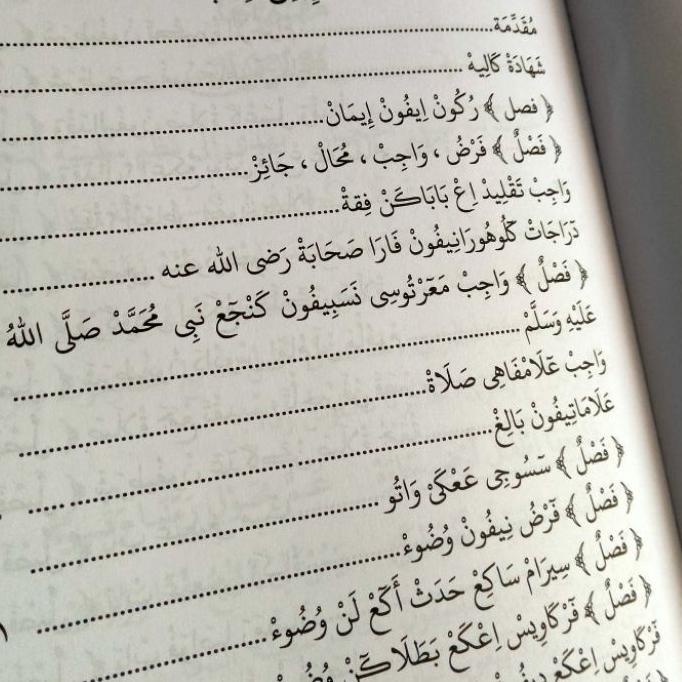 مُقَدِّمَة
شَهَادَةْ كَالِيهْ
﴿ فصل ﴾ رُكُونْ اِيفُونْ إِيمَانْ
﴿ فَصْلٌ ﴾ فَرْضُ ، وَاجِبْ ، مُحَالْ ، جَائِزْ
وَاجِبْ تَقْلِيدْ اِڠْ بَابَاكَنْ فِقْهْ
دَرَاجَاتْ كَلُوهُورَانِيفُونْ فَارَا صَحَابَةْ رَضِى الله عنه
﴿ فَصْلٌ ﴾ وَاجِبْ مَڠَرْتُوسِى نَسَبِيفُونْ كَنْجَڠْ نَبِى مُحَمَّدْ صَلَّى اللّٰهُ
عَلَيْهِ وَسَلَّمْ
وَاجِبْ عَلَامْفَاهِى صَلَاةْ
عَلَامَاتِيفُونْ بَالِغْ
﴿ فَصْلٌ ﴾ سَسُوجِى عَڠْكَىْ وَاتُو
﴿ فَصْلٌ ﴾ فَرْضُ نِيفُونْ وُضُوءْ
﴿ فَصْلٌ ﴾ سِيرَامْ سَاكِڠْ حَدَثْ أَكَڠْ لَنْ وُضُوءْ
﴿ فَصْلٌ ﴾ فَرْكَاوِيسْ اِڠْكَڠْ بَطَلَاكَنْ
فَرْكَاوِيسْ اِڠْكَڠْ